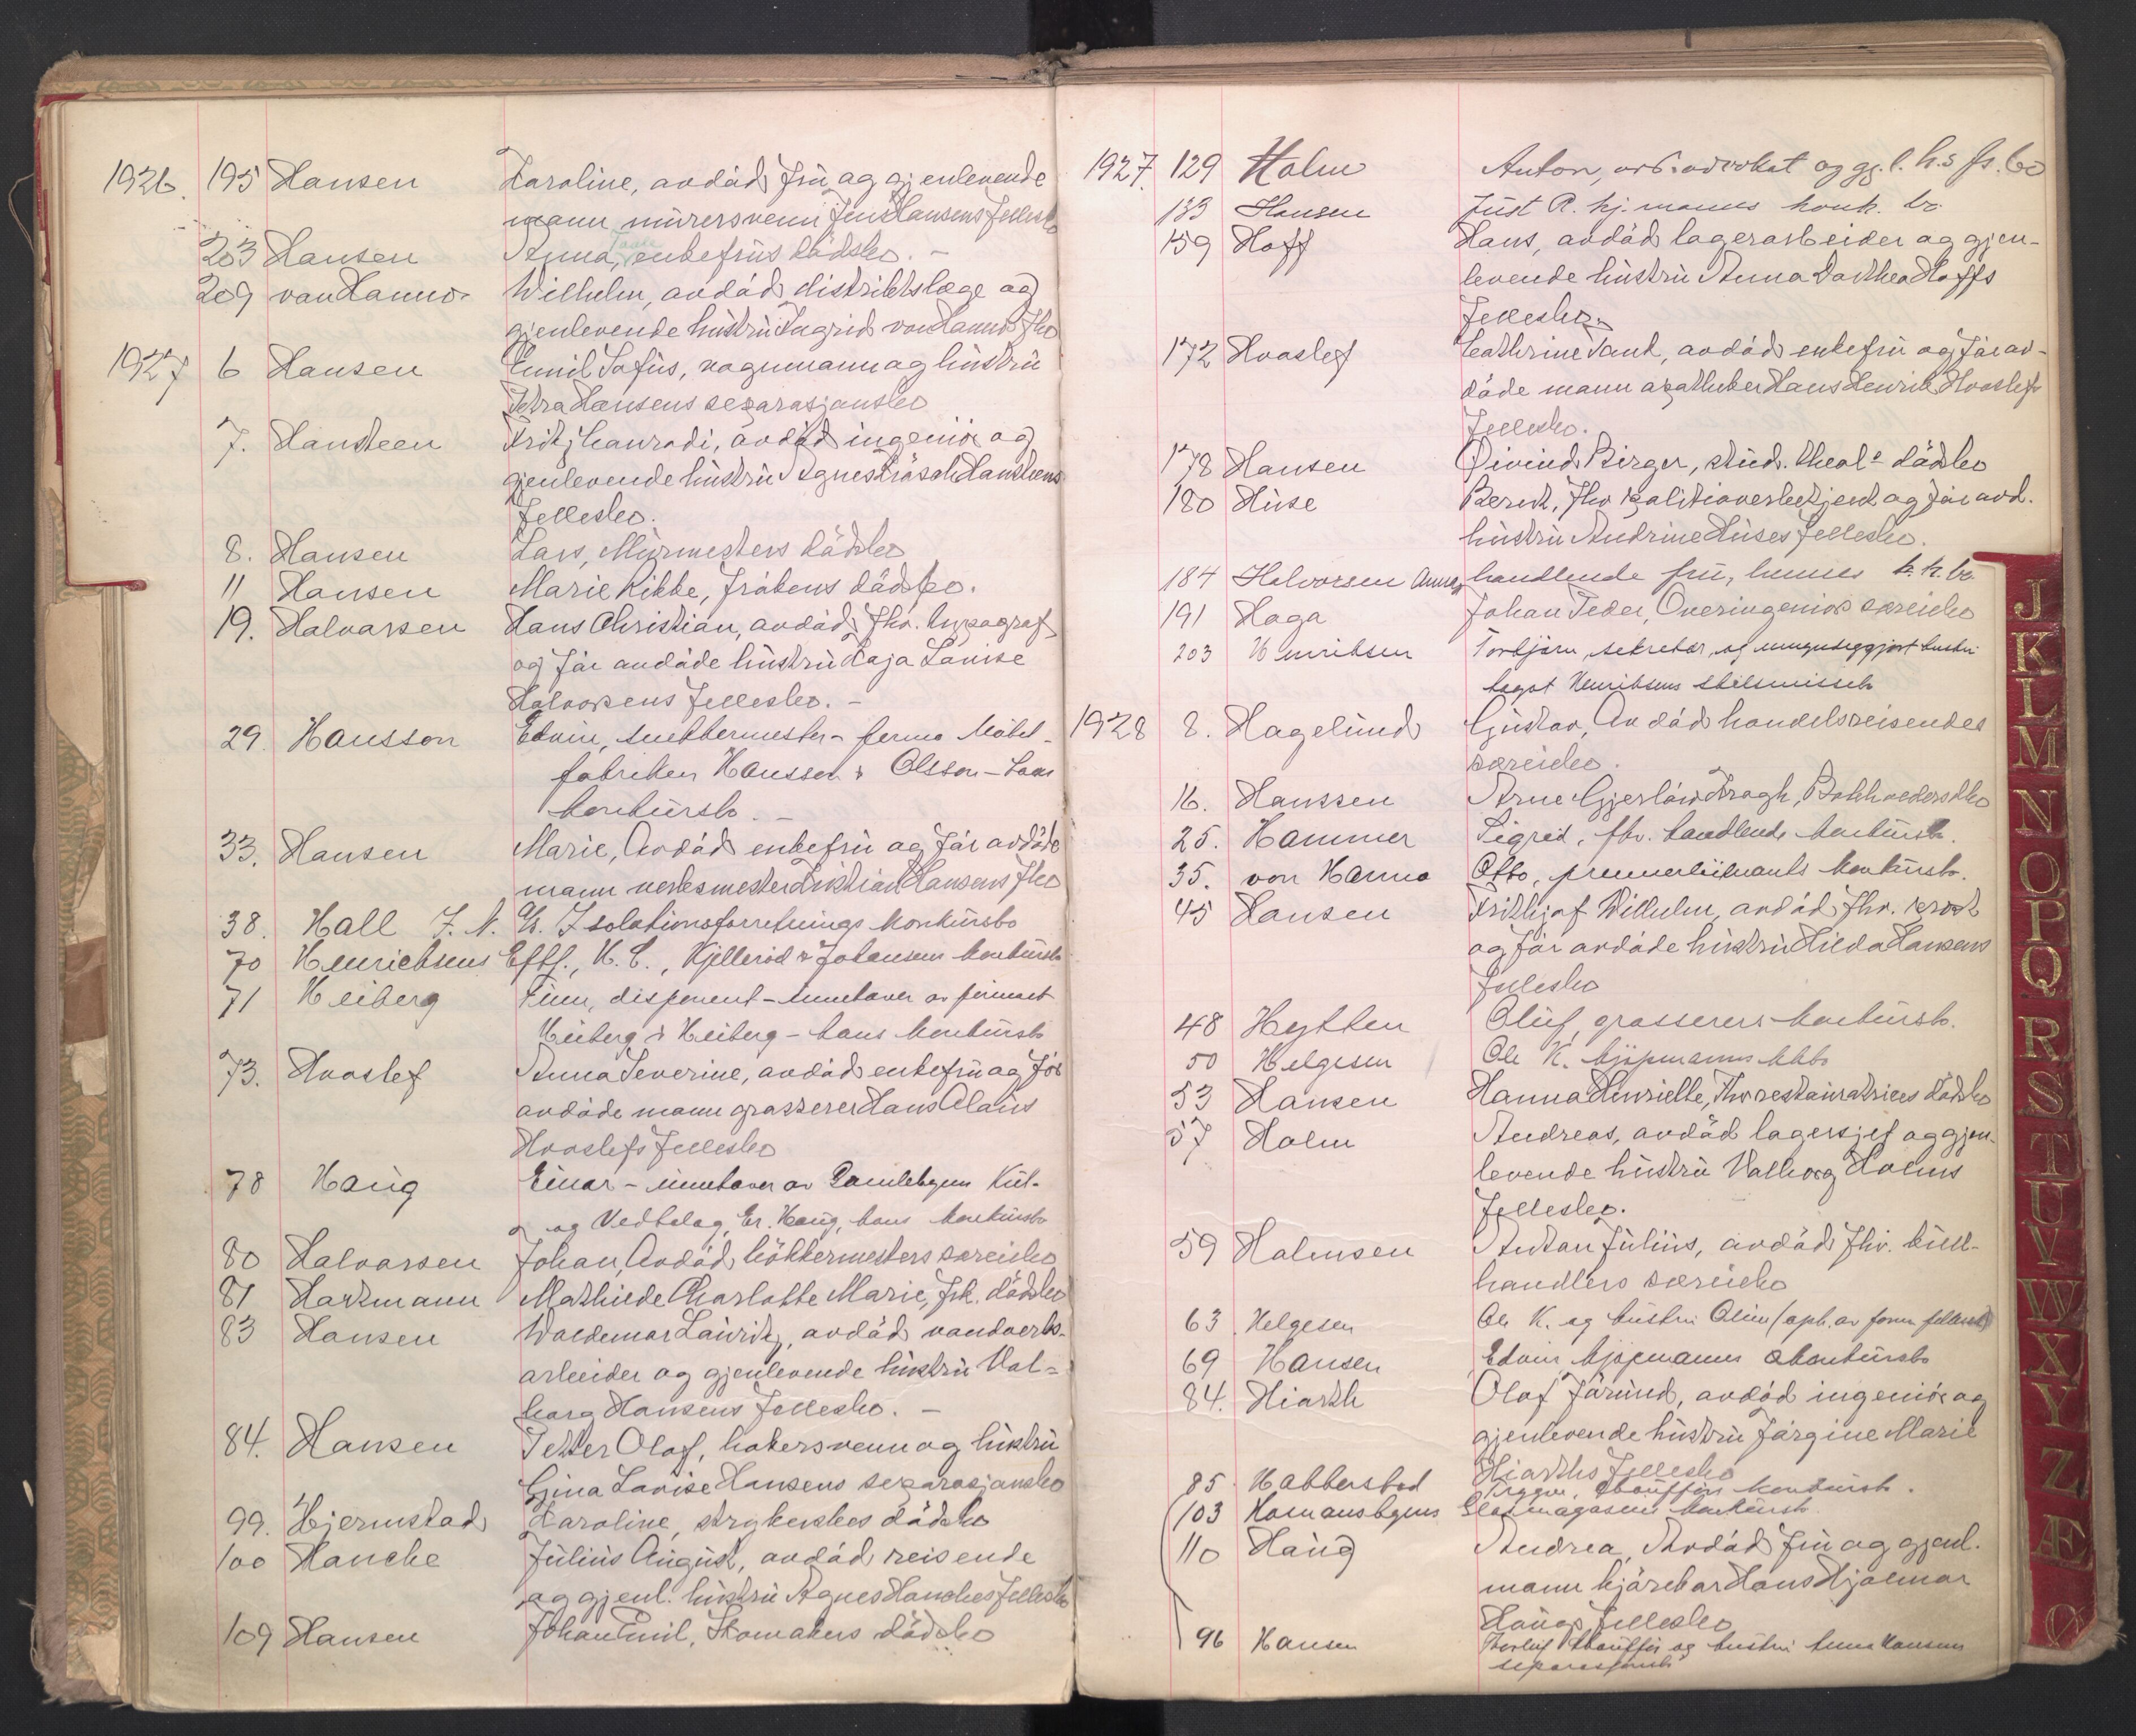 1926. 195 Hansen Karoline, avdød fru og gjenlevende
mann murersvenn Jens Hansens fellesbo
203 Hansen Anna, enkefrus dødsbo. –
209 van Hanno. Wilhelm, avdød distriktslæge og
gjenlevende hustru Ingrid von Hannos fbo
1927 6 Hansen Emil Sofus, vognmann og hustru
Petra Hansens separasjonsbo
7. Hansteen Fritz, avdød ingeniør og
gjenlevende hustru Agnes Hansteens
fellesbo.
8. Hansen Lars, Murmesters dødsbo
11 Hansen Marie Rikke, frøkens dødsbo.
19. Halvorsen Hans Christian, avdød fhv. typograf
og før avdøde hustru Kaja Lovise
Halvorsens fellesbo. –
29. Hansson Edvin, snekkermester – firma Møbel-
fabrikken Hansson & Olsson – hans
konkursbo. –
33. Hansen Marie, Avdød enkefru og før avdøde
mann verksmester Kristian Hansens fbo
38. Hall J. N. A/s. Isolationsforretnings konkursbo
70 Henrichsens Eftf., H. C., Kjellerød & Johansens konkursbo
71 Heiberg Finn, disponent – innehaver av firmaet
Heiberg & Heiberg – hans konkursbo
73. Hvoslef Anna Severine, avdød enkefru og før
avdøde mann grosserer Hans Claus
Hvoslefs fellesbo
78 Haug Einar – innehaver av Gamlebyens Kul-
og Vedbolag, Er. Haug, hans konkursbo
80 Halvorsen Johan, Avdød bøkkermesters særeiebo
81 Hartmann Mathilde Charlotte Marie, frk. dødsbo
83 Hansen Waldemar Lauritz, avdød vandverks-
arbeider og gjenlevende hustru Val-
borg Hansens fellesbo. –
84. Hansen Petter Olaf, bakersvenn og hustru
Gina Lovise Hansens separasjonsbo
99. Hjermstad Karoline, strykerskes dødsbo
100 Hanche Julius August, avdød reisende
og gjenl. hustru Agnes Hanches fellesbo
109 Hansen Johan Emil, Skomakers dødsbo
1927. 129 Holm Anton, advokat og gj. l. h.s fs. bo
139 Hansen Just R. kj. manns konk. bo.
159 Hoff Hans, avdød lagerarbeider og gjen-
levende hustru Anna Dorthea Hoffs
fellesbo.
172 Hvoslef Cathrine Tank, avdød enkefru og før av-
døde mann apotheker Hans Henrik Hvoslefs
fellesbo.
178 Hansen Øivind Birger, stud. theol.s dødsbo
180 Huse Berent, fhv politioverbetjent og før avd.
hustru Andrine Huses fellesbo.
184 Halvorsen Anna, handlende fru, hennes k.k. bo.
191 Haga Johan Peder, Overingeniør særeiebo
203 Henriksen Torbjørn, sekretær, og hustru
Henriksens skilsmissebo
1928 8. Hagelund Gustav, Avdød handelsreisendes
særeiebo.
16. Hanssen Arne Gjerløw Kragh, Bokholders dbo
25. Hammer Sigrid, fhv. handlende konkursbo.
35. von Hanno Otto, premierløitnants konkursbo.
45 Hansen Frithjof Wilhelm, avdød fhv.
og før avdøde hustru Hilda Hansens
fellesbo
48 Hytten Oluf, grosserers konkursbo.
50 Helgesen Ole K. kjøpmanns kkbo
53 Hansen Hanna Henriette, fhv restauratrices dødsbo
57 Holm Andreas, avdød lagersjef og gjen-
levende hustru Valborg Holms
fellesbo.
59 Holmsen Anton Julius, avdød fhv. kull-
handlers særeiebo
63 Helgesen Ole K. og hustru Oline (oph. av form. fellessk)
69 Hansen Edvin kjøpmanns konkursbo
84. Hiorth Olaf Jørund, avdød ingeniør og
gjenlevende hustru Jørgine Marie
Hiorths fellesbo
85 Habberstad Trygve, Chauffør konkursbo.
103 Homansbyens Glasmagasins konkursbo
110 Haug Andrea, Avdød frue og gjenl.
mann kjørekar Hans Hjalmar
Haugs fellesbo
96 Hansen Thorleif Chauffør og hustru Anna Hansens
separasjonsbo
J
K
L
M
N
O
P
Q
R
S
T
U
V
W
X
Y
Z
Æ
Ø